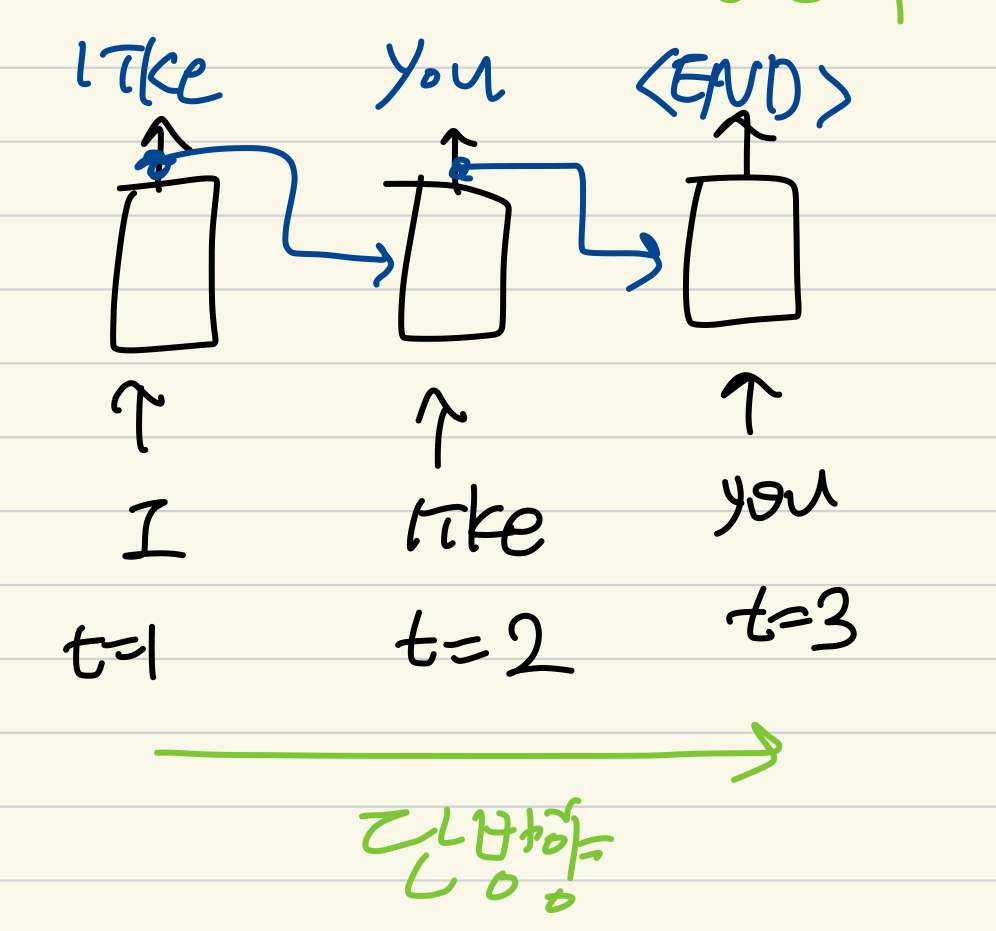 like you <END>
I like you
t=1 t=2 t=3
단방향